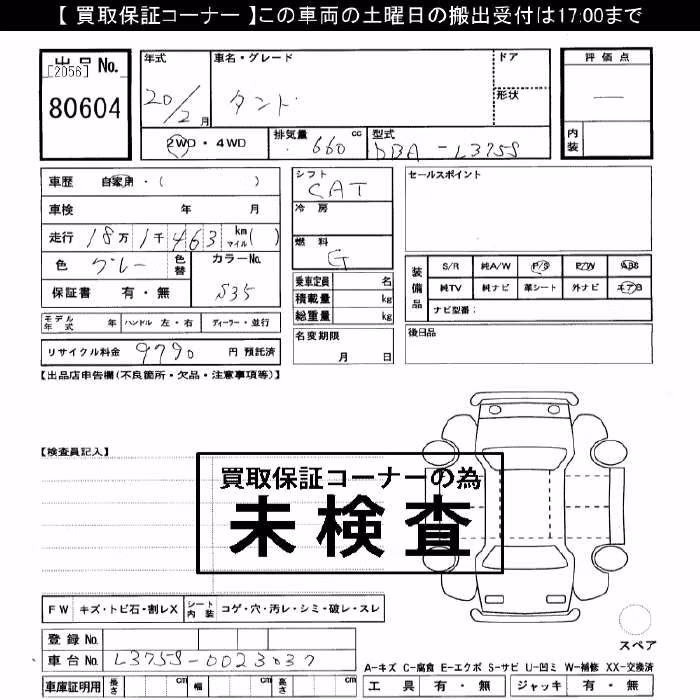 【 買取保証コーナー 】この車両の土曜日の搬出受付は17:00まで
出品 No.
[2056]
80604
年式
20/2月
車名・グレード
タント
ドア
形状
評価点
―
内装
2WD・4WD
排気量 660 cc
型式 DBA-L375S
車歴 自家用・( )
車検 年 月
走行 18万1千463 km マイル ( )
色 グレー 色替
カラーNo. S35
保証書 有・無
シフト
CAT
冷房
燃料
G
乗車定員 名
積載量 kg
総重量 kg
セールスポイント
装備品
S/R 純A/W P/S P/W ABS
純TV 純ナビ 革シート 外ナビ エアB
ナビ型番：
モデル年式 年 ハンドル 左・右 ディーラー・並行
リサイクル料金 9790 円 預託済
名変期限
月 日
後日品
【出品店申告欄(不良箇所・欠品・注意事項等)】
【検査員記入】
買取保証コーナーの為
未検査
FW キズ・トビ石・割レX シート内装 コゲ・穴・汚レ・シミ・破レ・スレ
登録 No.
車台 No. L375S-0023037
車庫証明用 長さ cm 幅 cm 高さ cm
スペア
A-キズ C-腐食 E-エクボ S-サビ U-凹ミ W-補修 XX-交換済
工具 有・無 ジャッキ 有・無